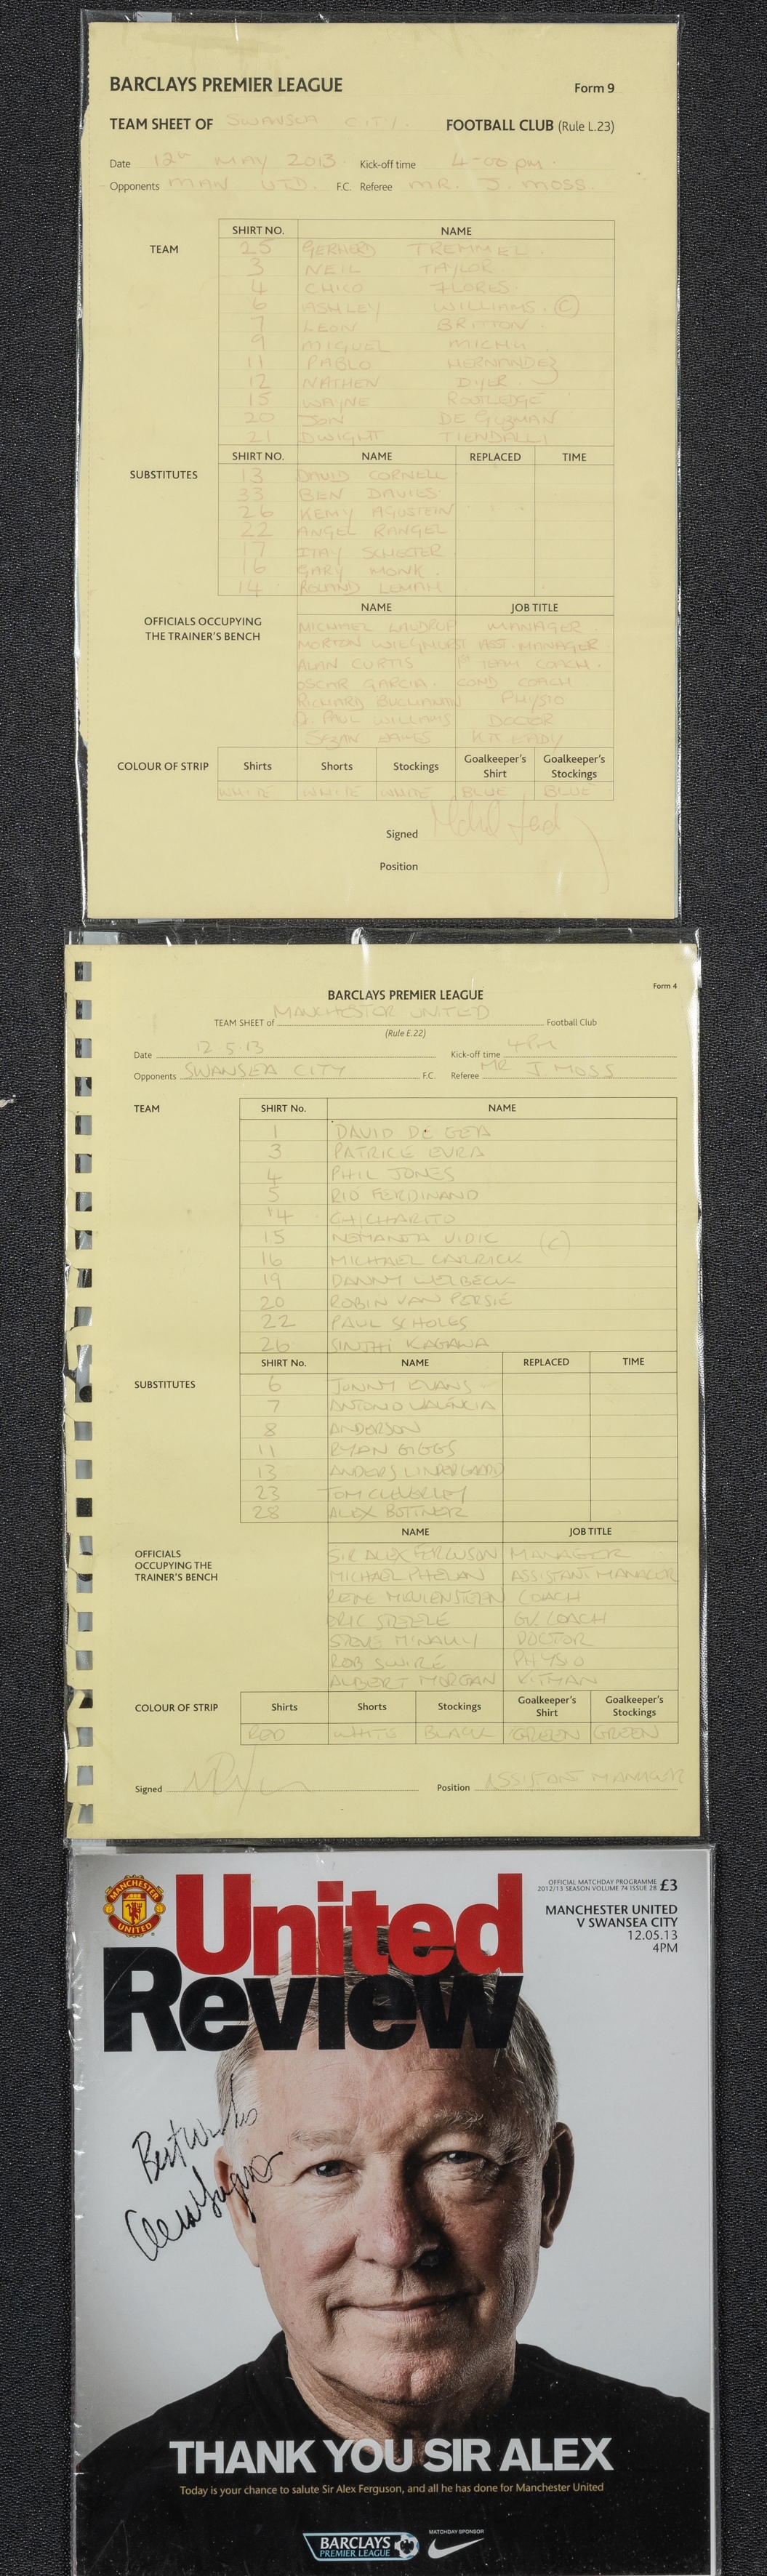 BARCLAYS PREMIER LEAGUE
Form 9
TEAM SHEET OF SWANSEA CITY FOOTBALL CLUB (Rule L.23)
Date 12th MAY 2013 Kick-off time 4-00 pm
Opponents MAN UTD. F.C. Referee MR. J. MOSS.
SHIRT NO. NAME
TEAM 25 GERHERD TREMMEL.
3 NEIL TAYLOR
4 CHICO FLORES
6 ASHLEY WILLIAMS. (C)
7 LEON BRITTON.
9 MIGUEL MICHU.
11 PABLO HERNANDEZ
12 NATHEN DYER.
15 WAYNE ROUTLEDGE
20 JON DE GUZMAN
21 DWIGHT TIENDALLI
SHIRT NO. NAME REPLACED TIME
SUBSTITUTES 13 DAVID CORNELL
33 BEN DAVIES
26 KEMY AGUSTEIN
22 ANGEL RANGEL
17 ITAY SCHECTER
16 GARY MONK.
14 ROLAND LEMAH
NAME JOB TITLE
OFFICIALS OCCUPYING
THE TRAINER'S BENCH
MICHAEL LAUDRUP MANAGER.
MORTON WIEGHURST ASST. MANAGER
ALAN CURTIS 1ST TEAM COACH.
OSCAR GARCIA. COND COACH
RICHARD BUCHANAN PHYSIO
Dr. PAUL WILLIAMS DOCTOR
EAMES KIT
COLOUR OF STRIP Shirts Shorts Stockings Goalkeeper's Shirt Goalkeeper's Stockings
WHITE WHITE WHITE BLUE BLUE
Signed
Position
Form 4
BARCLAYS PREMIER LEAGUE
TEAM SHEET of MANCHESTER UNITED Football Club
(Rule E.22)
Date 12.5.13 Kick-off time 4PM
Opponents SWANSEA CITY F.C. Referee MR J. MOSS
TEAM SHIRT No. NAME
1 DAVID DE GEA
3 PATRICE EVRA
4 PHIL JONES
5 RIO FERDINAND
14 CHICHARITO
15 NEMANJA VIDIC (C)
16 MICHAEL CARRICK
19 DANNY WELBECK
20 ROBIN VAN PERSIE
22 PAUL SCHOLES
26 SINJHI KAGAWA
SHIRT No. NAME REPLACED TIME
SUBSTITUTES 6 JONNY EVANS
7 ANTONIO VALENCIA
8 ANDERSON
11 RYAN GIGGS
13 ANDERS LINDERGAARD
23 TOM CLEVERLEY
28 ALEX BUTTNER
NAME JOB TITLE
OFFICIALS
OCCUPYING THE
TRAINER'S BENCH
SIR ALEX FERGUSON MANAGER
MICHAEL PHELAN ASSISTANT MANAGER
RENE MEULENSTEEN COACH
ERIC STEELE GK COACH
STEVE McNALLY DOCTOR
ROB SWIRE PHYSIO
ALBERT MORGAN KITMAN
COLOUR OF STRIP Shirts Shorts Stockings Goalkeeper's Shirt Goalkeeper's Stockings
RED WHITE BLACK GREEN GREEN
Signed Position ASSISTANT MANAGER
MANCHESTER
UNITED
United
Review
OFFICIAL MATCHDAY PROGRAMME
2012/13 SEASON VOLUME 74 ISSUE 28 £3
MANCHESTER UNITED
V SWANSEA CITY
12.05.13
4PM
Best Wishes
Alex Ferguson
THANK YOU SIR ALEX
Today is your chance to salute Sir Alex Ferguson, and all he has done for Manchester United
BARCLAYS
PREMIER LEAGUE
MATCHDAY SPONSOR